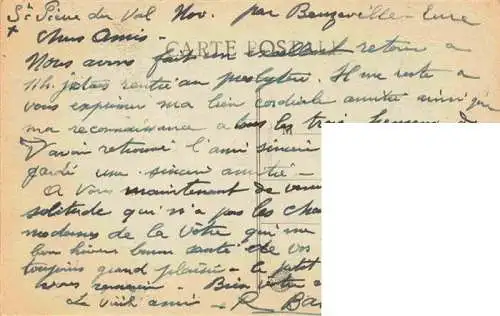 St Pierre du Val Nov. par Beuzeville - Eure
Chers Amis -
CARTE POSTALE
Nous avons fait un excellent retour à
11h. j'étais rentré au presbytère. Il me reste à
vous exprimer ma bien cordiale amitié ainsi que
ma reconnaissance à tous les trois heureux de
d'avoir retrouvé l'ami sincère
gardé une sincère amitié -
A vous maintenant de venir
solitude qui n'a pas les cha
modernes de la vôtre qui me
bon hiver bonne santé de vos
toujours grand plaisir - le petit
vous remercie - Bien vôtre
Le vieil ami - R Ba